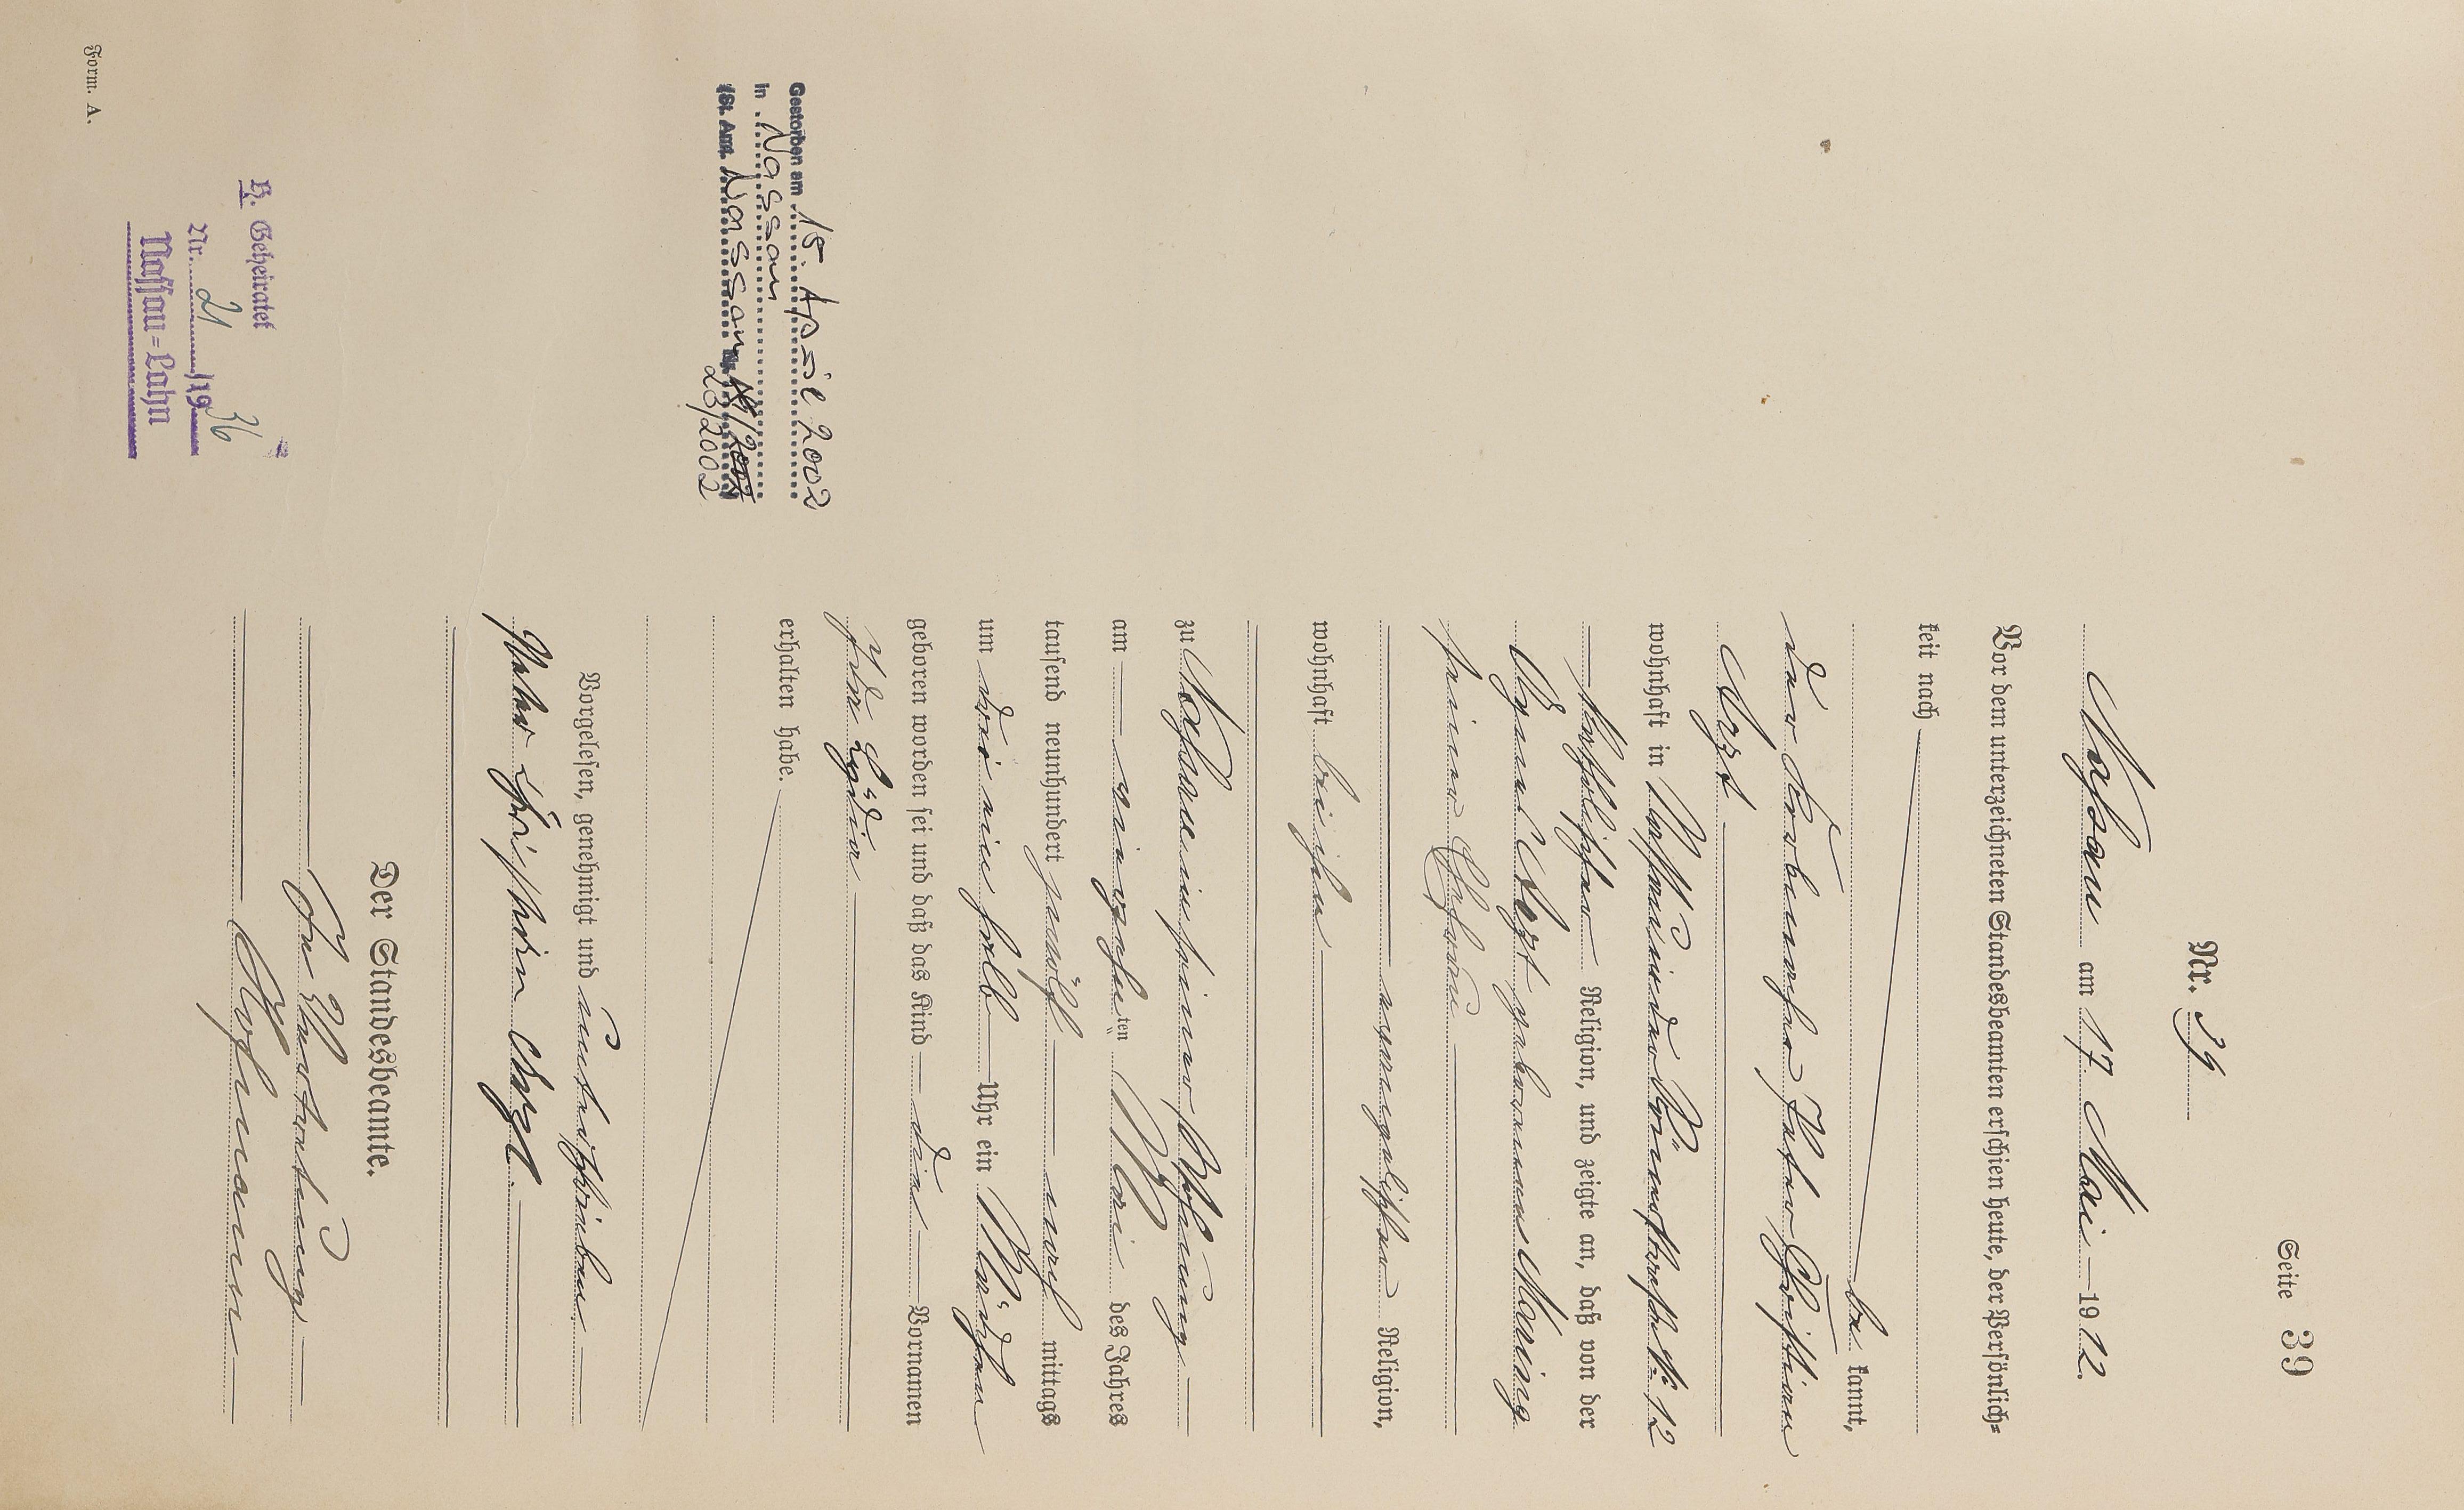 Seite 39
Nr. 39
Nassau am 17 Mai 1912.
Vor dem unterzeichneten Standesbeamten erschien heute, der Persönlich=
keit nach
be kannt,
der Taubmacher Peter Christian
Arzt
wohnhaft in Nassau in der Römerstraße No 12
katholischer Religion, und zeigte an, daß von der
Arzt geborenen
seiner Ehefrau
evangelischer Religion,
wohnhaft bei ihm
zu Nassau in seiner Wohnung
am vierzehn ten Mai des Jahres
tausend neunhundert zwölf nach mittags
um drei ein halb Uhr ein Mädchen
geboren worden sei und daß das Kind den Vornamen
Lydia
erhalten habe.
Vorgelesen, genehmigt und unterschrieben
Peter Christian Arzt.
Der Standesbeamte.
In Vertretung
Hofmann
Gestorben am 15. April 2002
in Nassau
(St. Amt Nassau Nr.
23/2002
H. Geheiratet
Nr. 21 /19 36
Nassau=Lahn
Form. A.